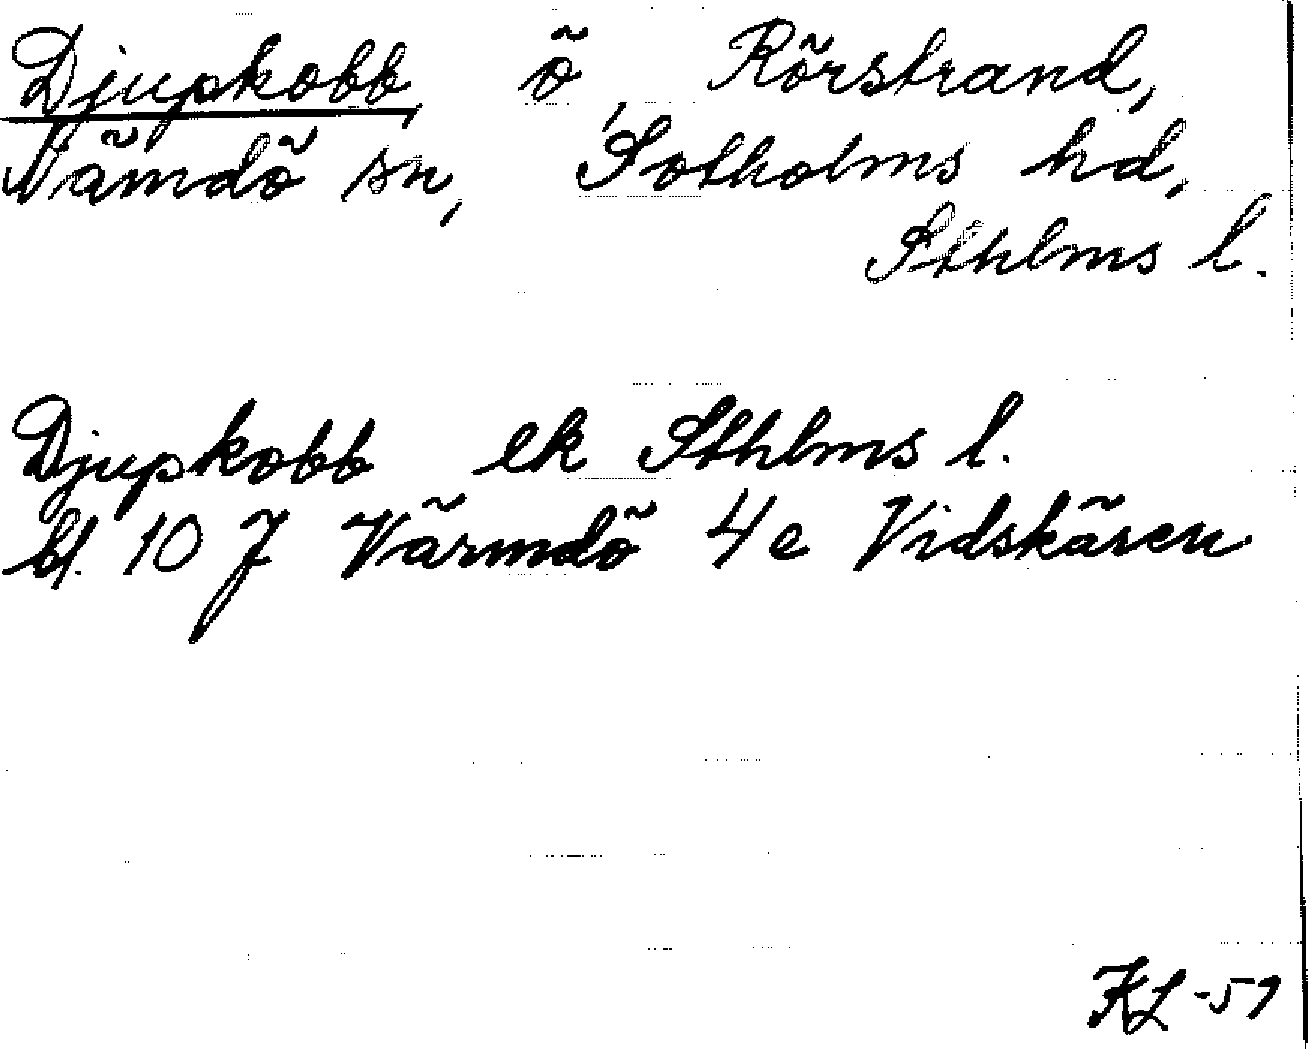 Djupkobb, ö, Rörstrand,
Nämdö sn, Sotholms hd,
Sthlms l.
Djupkobb ek Sthlms l.
bl. 10 J Värmdö 4e Vidskären
KL -51